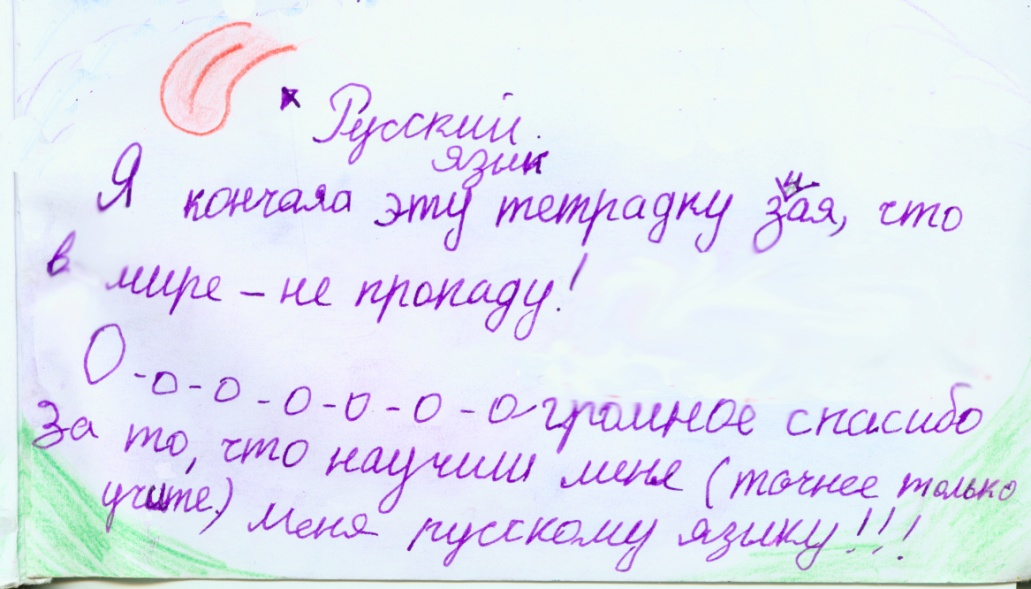 Русский
язик
Я кончала эту тетрадку зная, что
в мире – не пропаду!
О-о-о-о-о-о-о-громное спасибо
За то, что научили меня (точнее только
учите) меня русскому языку!!!